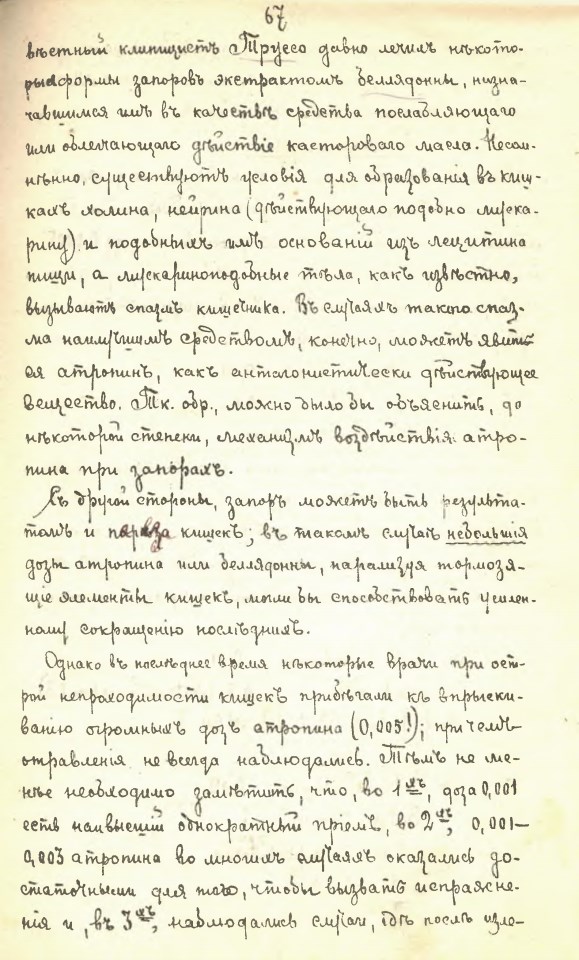 67
вѣстный клиницистъ Труссо давно лечилъ нѣкото-
рыя формы запоровъ экстрактомъ белладонны, назна-
чавшимся имъ въ качествѣ средства послабляющаго
или облегчающаго дѣйствіе кастороваго масла. Несом-
нѣнно, существуютъ условія для образованія въ киш-
кахъ холина, нейрина (дѣйствующаго подобно муска-
рину) и подобныхъ имъ основаній изъ лецитина
пищи, а мускариноподобные тѣла, какъ извѣстно,
вызываютъ спазмъ кишечника. Въ случаяхъ такого спаз-
ма наилучшимъ средствомъ, конечно, можетъ явить-
ся атропинъ, какъ антагонистически дѣйствующее
вещество. Тк. обр., можно было бы объяснить, до
нѣкоторой степени, механизмъ воздѣйствія атро-
пина при запорахъ.
Съ другой стороны, запоръ можетъ быть результа-
томъ и пареза кишекъ; въ такомъ случаѣ небольшія
дозы атропина или белладонны, парализуя тормозя-
щіе элементы кишекъ, могли бы способствовать усилен-
ному сокращенію послѣднихъ.
Однако въ послѣднее время нѣкоторые врачи при ост-
рой непроходимости кишекъ прибѣгали къ впрыски-
ванію огромныхъ дозъ атропина (0,005!); при чемъ
отравленія не всегда наблюдались. Тѣмъ не ме-
нѣе необходимо замѣтить, что, во 1хъ, доза 0,001
есть наивысшій однократный пріемъ, во 2хъ, 0,001—
0,003 атропина во многихъ случаяхъ оказались до-
статочными для того, чтобы вызвать испражне-
нія и, въ 3хъ, наблюдались случаи, гдѣ послѣ изле-